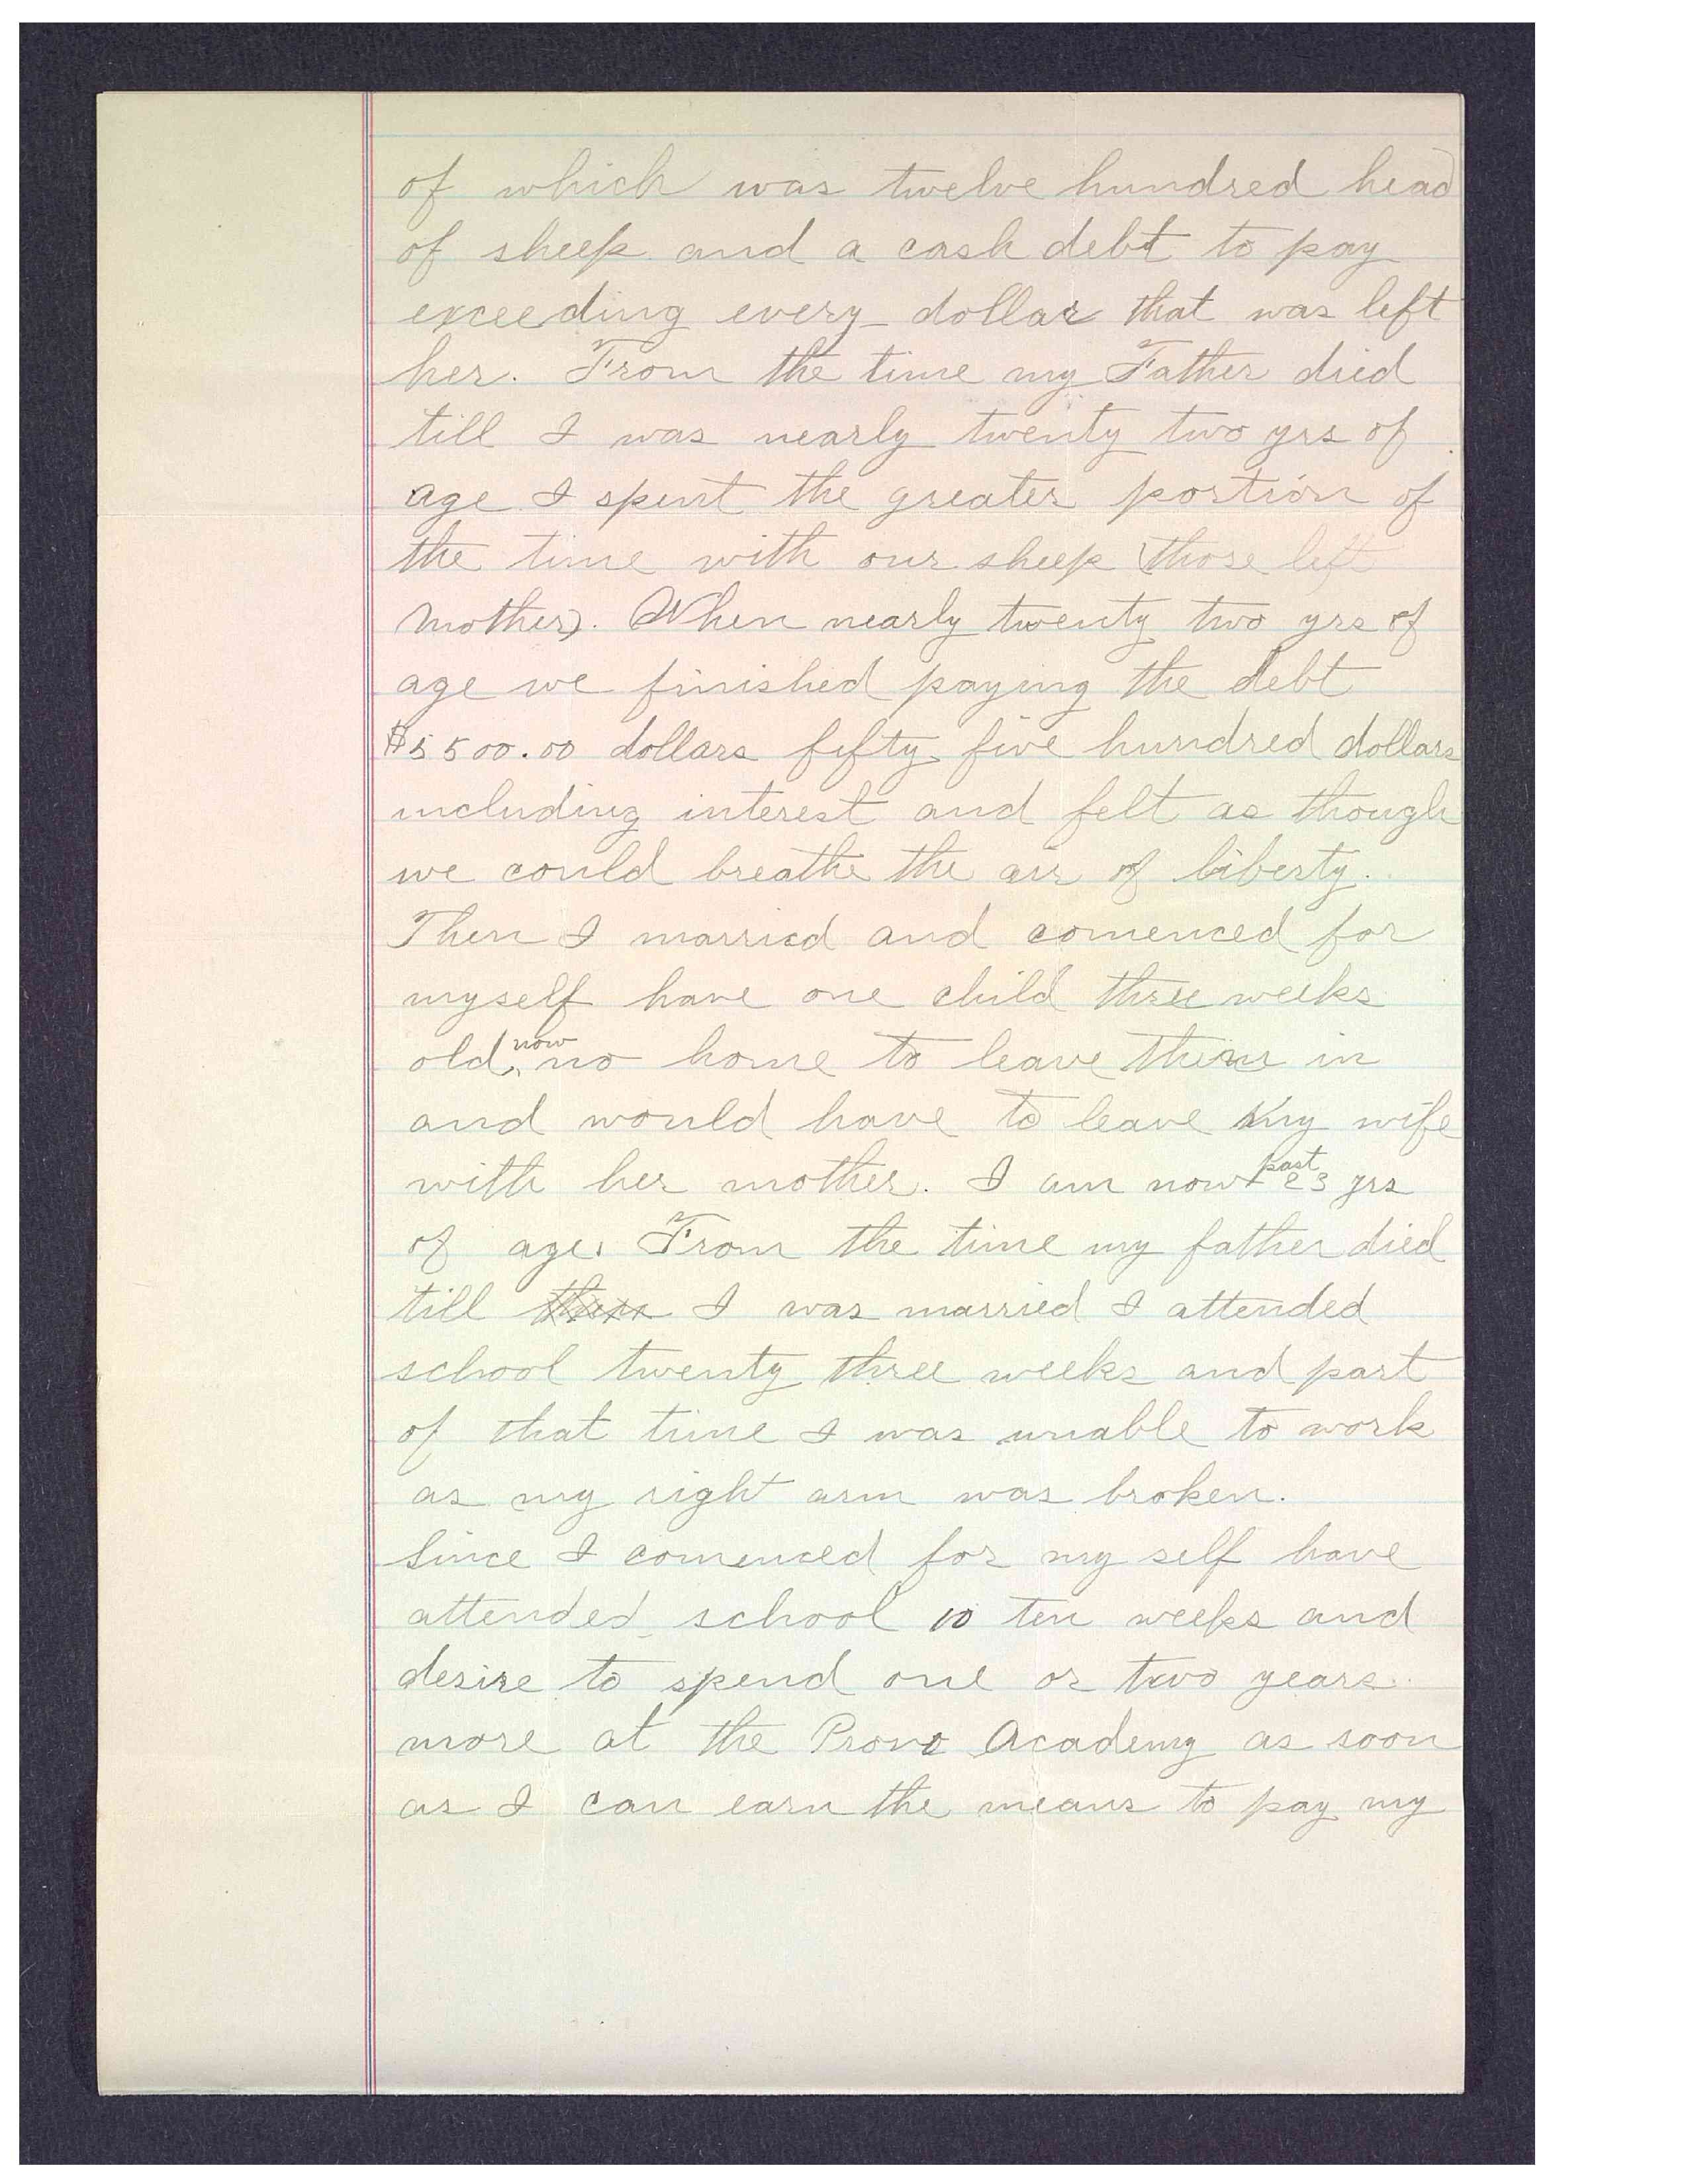 of which was twelve hundred head
of sheep and a cash debt to pay
exceeding every dollar that was left
her. From the time my Father died
till I was nearly twenty two yrs of
age I spent the greater portion of
the time with our sheep (those left
Mother). When nearly twenty two yrs of
age we finished paying the debt
$5500.00 dollars fifty five hundred dollars
including interest and felt as though
we could breathe the air of liberty.
Then I married and comenced for
myself have one child three weeks
old, now no home to leave them in
and would have to leave my wife
with her mother. I am now past 23 yrs
of age. From the time my father died
till then I was married I attended
school twenty three weeks and part
of that time I was unable to work
as my right arm was broken.
Since I comenced for my self have
attended school 10 ten weeks and
desire to spend one or two years
more at the Provo Academy as soon
as I can earn the means to pay my